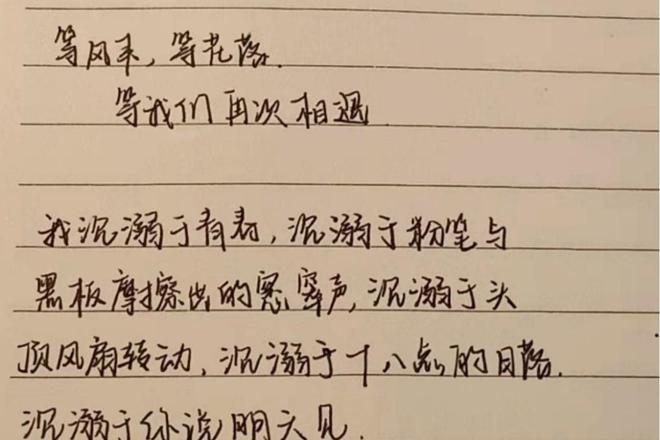 等风来，等花落.
等我们再次相遇
我沉溺于青春，沉溺于粉笔与
黑板摩擦出的窸窣声，沉溺于头
顶风扇转动，沉溺于十八点的日落.
沉溺于你说明天见.